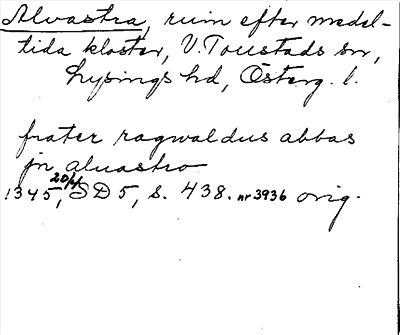 Alvastra, ruin efter medel-
tida kloster, V. Toustads sn,
Lysings hd, Österg. l.
frater ragwaldus abbas
jn aluastro
1345 20/4, SD 5, s. 438. nr 3936 orig.